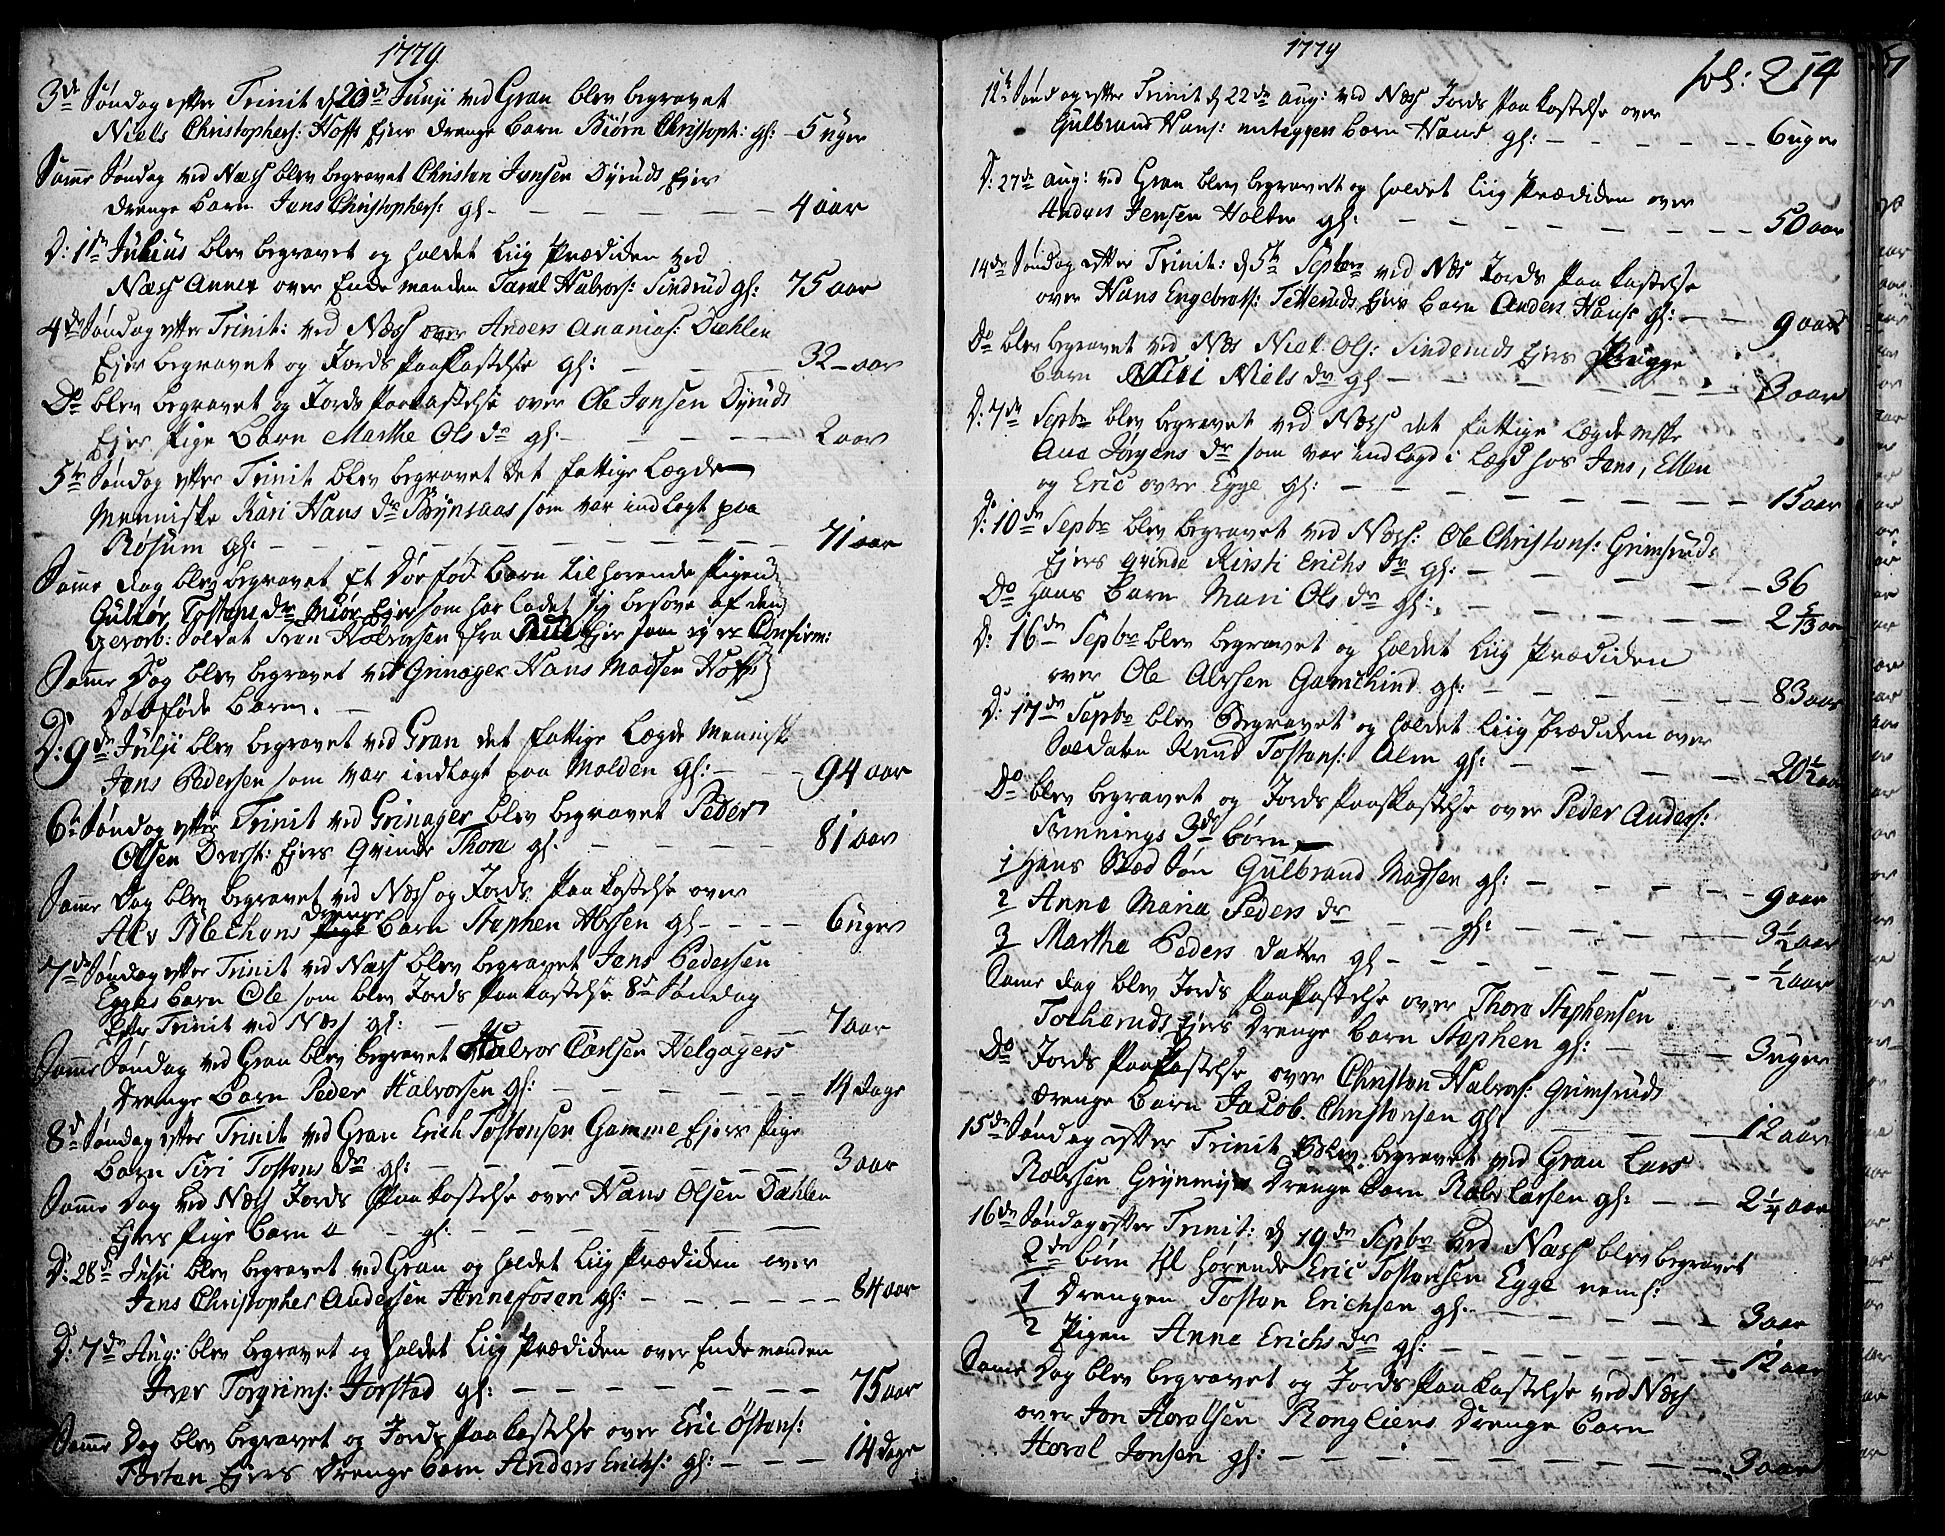 1779
3de Søndag efter Trinit d 20de Junji ved Gran blev begravet
Niels Christophers: Hoffs Ejers drenge barn Biørn Christoph: gl: 5 uger
Samme Søndag ved Næss blev begravet Christen Jensen Dÿruds Ejes
drenge barn Jens Christophers: gl - - - 4 aar
D: 1te Julius blev begravet og holdet Liig Prædiken ved
Næss Annex over Enkemanden Taral Halvors: Sindrud gl: 75 aar
4de Søndag efter Trinit: ved Næss over Anders Ananias: Dæhlen
Ejer begravet og Jords Paakastelse gl: - - 32 - aar
Do blev begravet og Jords Paakastelse over Ole Jensen Dÿruds
Ejers Pige barn Marthe Ols dr gl: - - - 2 aar
5te Søndag efter Trinit blev begravet det fattige Lægde
Menniske Kari Hans dr som var indlagt paa
Røsum gl: - - - 71 aar
Samme dag blev begravet Et Dødfød barn tilhørende Pigen
Gubiør Tostens dr Ejer som har ladet sig besove af den
Gevorb: Soldat Iver Halvorsen fra Ejer som ej er Confirm:
Samme Dag blev begravet ved Grinager Hans Madsen Hoffs
Dødføde barn. -
D: 9de Julji blev begravet ved Gran det fattige Lægde Menniske
Jens Pedersen som var indlagt paa Molden gl: - - 94 aar
6te Søndag efter Trinit ved Grinager blev begravet Peder
Olsen Ejers Qvinde Thore gl: - - - 81 aar
Samme Dag blev begravet ved Næss og Jords Paakastelse over
Alv drenge barn Stephen Alvsen gl - - - 6 uger
7de Søndag efter Trinit ved Næss blev begravet Jens Pedersen
Egges barn Ole som blev Jords Paakastelse 8de Søndag
Efter Trinit ved Næss gl: - - - 7 aar
Samme Søndag ved Gran blev begravet Halvor Carlsen Helgagers
Drenge barn Peder Halvorsen gl: - - - 14 dage
8de Søndag efter Trinit ved Gran Erich Tostensen Gamme Ejers Pige
barn Siri Tostens dr gl: - - - 3 aar
Samme Dag ved Næss Jords Paakastelse over Hans Olsen Dæhlen
Ejers Pige barn - gl: - - -
D: 28de Julji blev begravet ved Gran og holdet Liig Prædiken over
Jens Christopher Andersen Annefosen gl: - - - 84 aar
D: 7de Aug: blev begravet og holdet Liig Prædiken over Enkemanden
Iver Torgrims: Jorstad gl: - - - 75 aar
Samme Dag blev begravet og Jords Paakastelse over Eric Østens:
Tosten Ejers drenge barn Anders Erichs: gl: - - - 14 dage
1779
fol: 214
12te Søndag efter Trinit d 22de Aug: ved Næss Jords Paakastelse over
Gulbrand Hans: barn Hans gl: - - - 6 uger
D: 27de Aug: ved Gran blev begravet og holdet Liig Prædiken over
Anders Jensen Holter gl: - - - 50 aar
14de Søndag efter Trinit: d 5te Septbr ved Næs Jords Paakastelse
over Hans Engebrets: Tetteruds Ejers barn Anders Hans: gl: - - 9 aar
Do blev begravet ved Næs Niels Ols: Sinderuds Ejers
barn Niels dr gl - - - 3 aar
D: 7de Septbr blev begravet ved Næss det fattige Lægdemske
Ane Jørgens dr som var indlagd i Lægd hos Jens, Ellen
og Eric øvre Egge gl: - - - 15 aar
D: 10de Septbr blev begravet ved Næss: Ole Christens: Grimsruds
Ejers qvinde Kirsti Erichs dr gl: - - - 36
Do Hans Barn Mari Ols dr gl: - - - 2
D: 16de Septbr blev begravet og holdet Liig Prædiken
over Ole Alvsen Gamchind gl: - - - 83 aar
D: 17de Septbr blev Begravet og holdet Liig Prædiken over
Soldaten Knud Tostens: Alm gl: - - - 20 1/2 aar
Do blev begravet og Jords Paakastelse over Peder Anders:
3de børn
1 Hans Sted Søn Gulbrand Madsen gl: - - - 9 aar
2 Anne Maria Peders dr - - gl: - - - 3 1/2 aar
3 Marthe Peders Datter gl - - - 1/2 aar
Samme dag blev Jords Paakastelse over Thore Stephensen
Ejers Drenge barn Stephen gl: - - - 3 uger
Do Jords Paakastelse over Christen Halvors: Grimsruds
drenge barn Jacob Christensen gl - - - 12 aar
15de Søndag efter Trinit Blev begravet ved Gran Lars
Rolvsen Drenge barn Rolv Larsen gl: - - 2 1/4 aar
16de Søndag efter Trinit: d 19de Septbr ved Næss blev begravet
2de børn til hørende Eric Tostensen Egge neml:
1 Drengen Tosten Erichsen gl: - - - 3 aar
2 Pigen Anne Erichs dr gl: - - - 12 aar
Samme Dag blev begravet og Jords Paakastelse ved Næss
over Jon Haralsen Rongliens Drenge barn
Haral Jonsen gl: - - - 3 aar